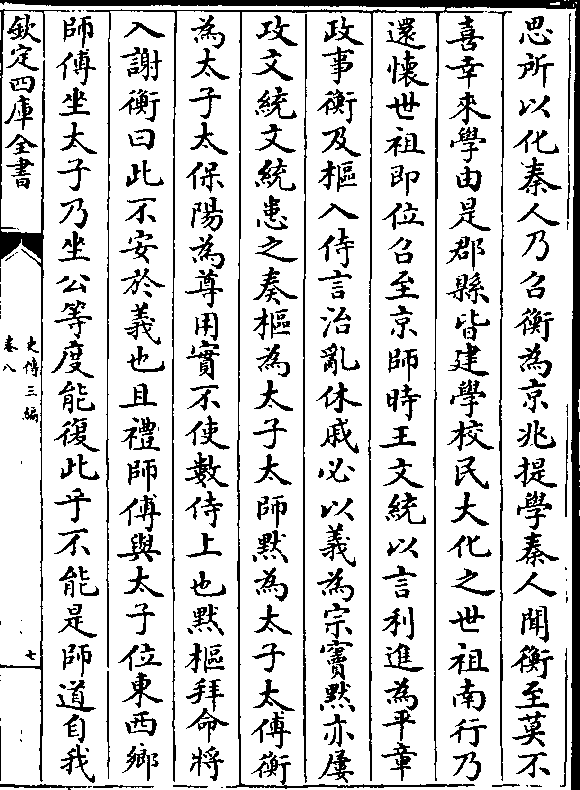 思所以化秦人乃召衡為京兆提學秦人聞衡至莫不
喜幸來學由是郡縣皆建學校民大化之世祖南行乃
還懷世祖即位召至京師時王文統以言利進為平章
政事衡及樞入侍言治亂休戚必以義為宗竇默亦屢
攻文統文統患之奏樞為太子太師默為太子太傅衡
為太子太保陽為尊用實不使數侍上也默樞拜命將
入謝衡曰此不安於義也且禮師傅與太子位東西鄉
師傅坐太子乃坐公等度能復此乎不能是師道自我
欽定四庫全書
史傳三編
卷八
七